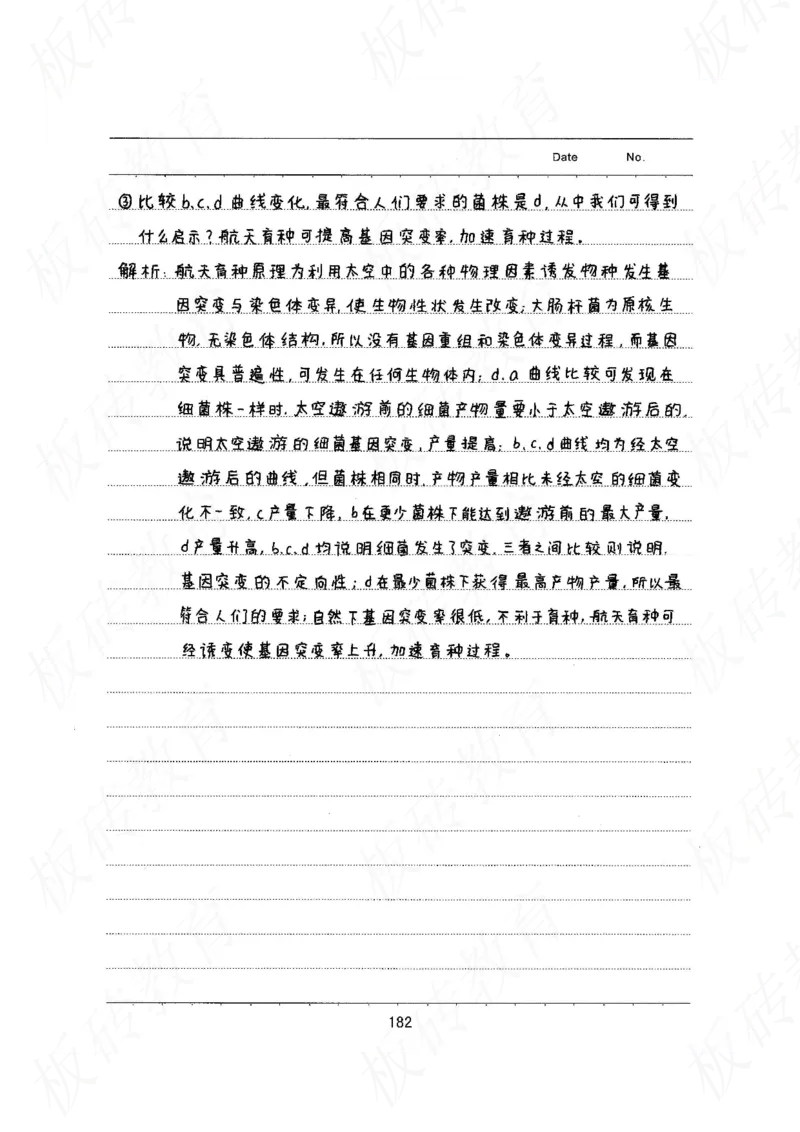 Date No.
③比较b.c.d曲线变化,最符合人们要求的菌株是d,从中我们可得到
什么启示?航天育种可提高基因突变率,加速育种过程。
解析:航天育种原理为利用太空中的各种物理因素诱发物种发生基
因突变与染色体变异,使生物性状发生改变;大肠杆菌为原核生
物,无染色体结构,所以没有基因重组和染色体变异过程,而基因
突变具普遍性,可发生在任何生物体内;d.a曲线比较可发现在
细菌株一样时,太空遨游前的细菌产物量要小于太空遨游后的,
说明太空遨游的细菌基因突变,产量提高;b.c.d曲线均为经太空
遨游后的曲线,但菌株相同时,产物产量相比未经太空的细菌变
化不一致,c产量下降,b在更少菌株下能达到遨游前的最大产量,
d产量升高,b.c.d均说明细菌发生了突变,三者之间比较则说明,
基因突变的不定向性;d在最少菌株下获得最高产物产量,所以最
符合人们的要求;自然下基因突变率很低,不利于育种,航天育种可
经诱变使基因突变率上升,加速育种过程。
182
板砖教育